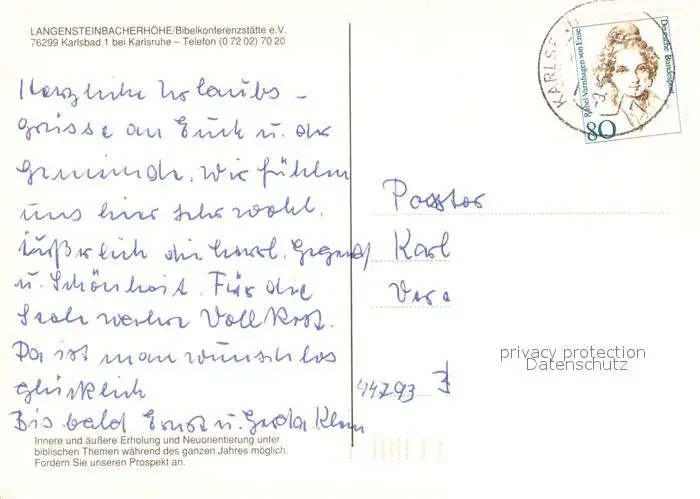 LANGENSTEINBACHERHÖHE/Bibelkonferenzstätte e.V.
76299 Karlsbad 1 bei Karlsruhe – Telefon (0 72 02) 70 20
Herzliche Urlaubs -
grüsse an Euch u. der
Gemeinde. Wir fühlen
uns hier sehr wohl.
Äußerlich die herrl. Gegend
u. Schönheit. Für die
Seele wahre Vollkost.
Da ist man wunschlos
glücklich
Bis bald Ernst u. Gerda Klein
Innere und äußere Erholung und Neuorientierung unter
biblischen Themen während des ganzen Jahres möglich.
Fordern Sie unseren Prospekt an.
KARLSBAD
Rahel Varnhagen von Ense
Deutsche Bundespost
80
Pastor
Karl
44793
privacy protection
Datenschutz